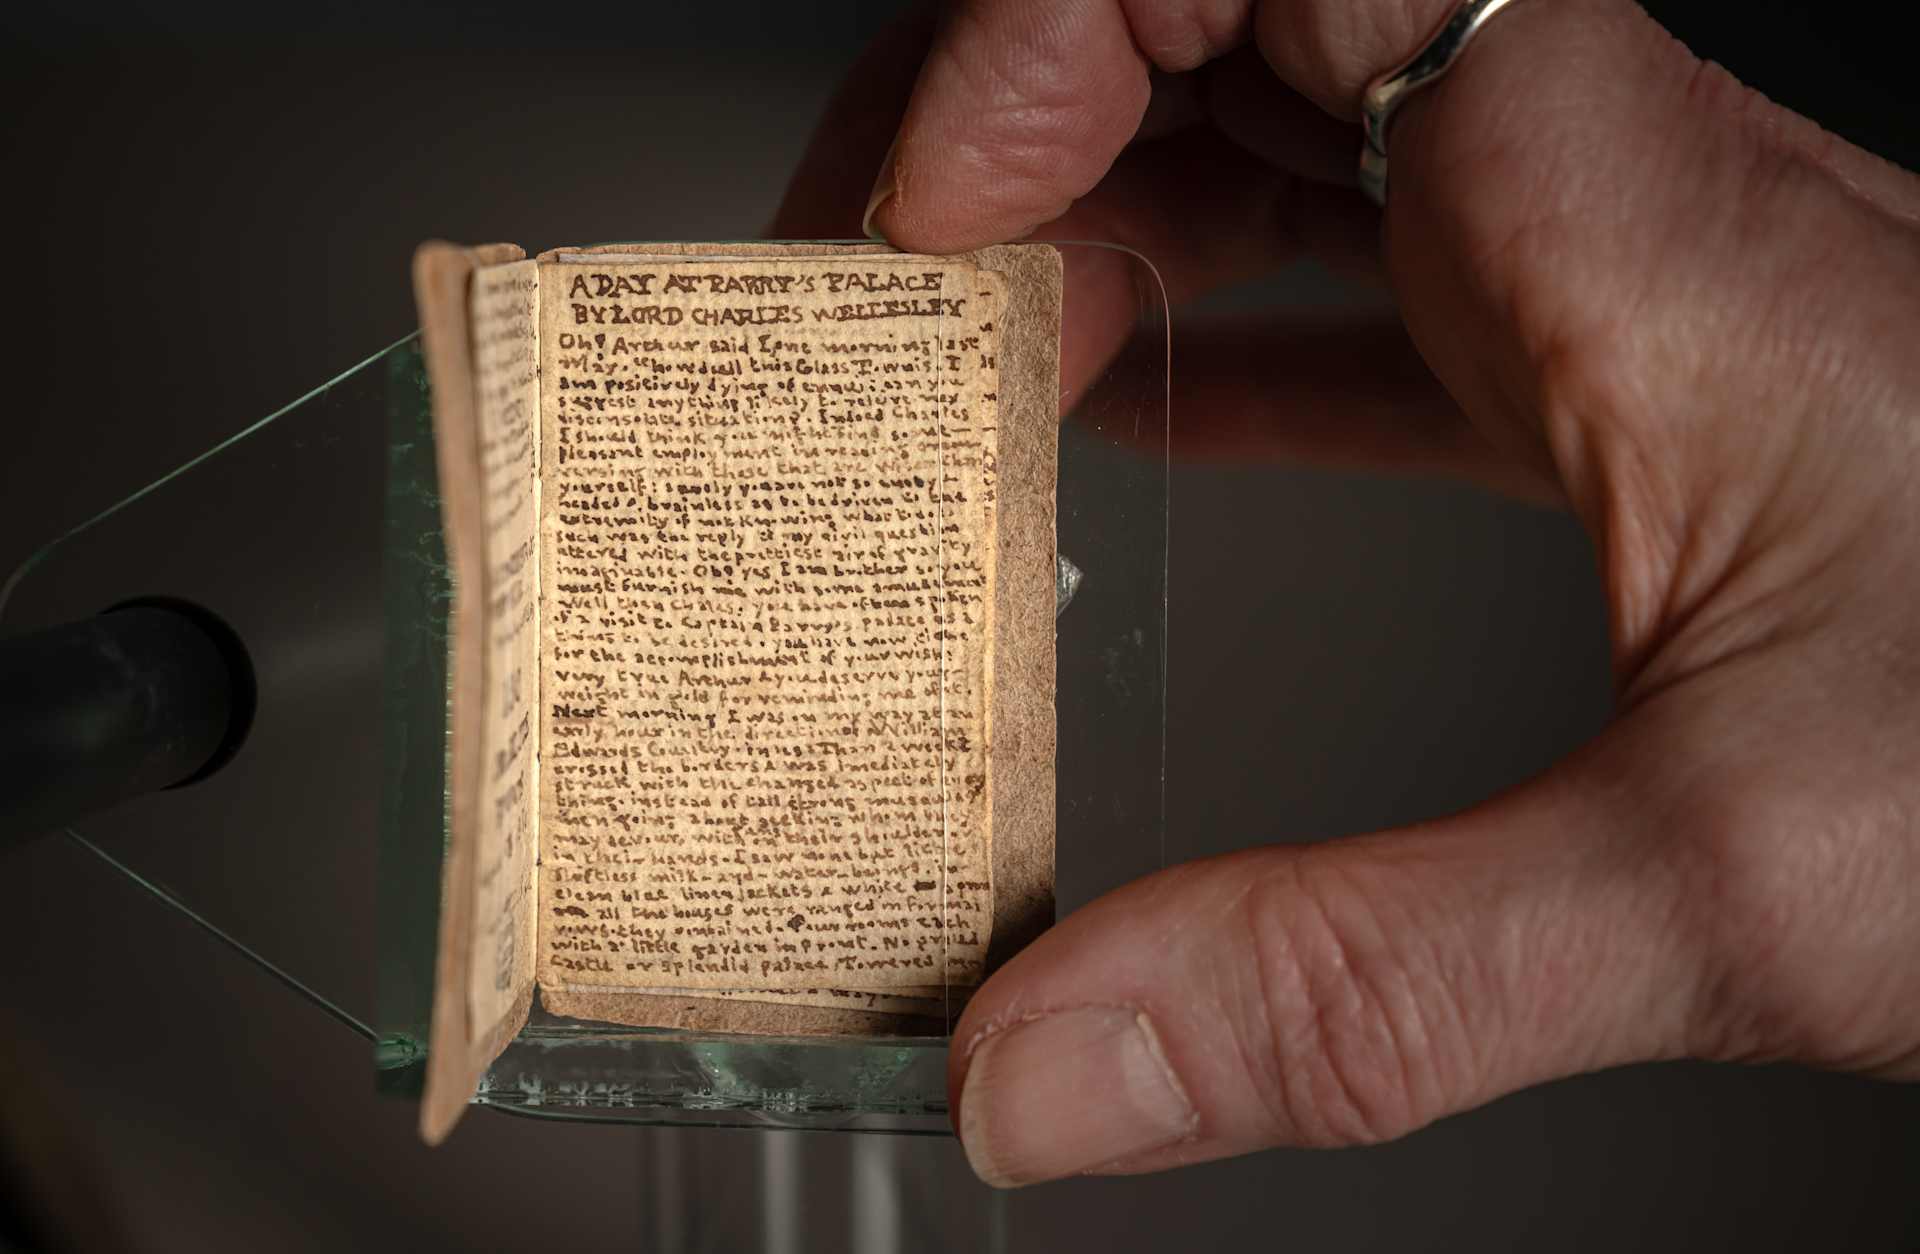 A DAY AT PARRY'S PALACE
BY LORD CHARLES WELLESLEY
Oh! Arthur said I one morning last
May. "how dull this Glass T. wn is. I
am positively dying of ennui. can you
suggest anything likely to relive my
disconsolate situation?. Indeed Charles
I should think you might find some
pleasant employment in reading or con
versing with those that are wiser than
yourself. surely you are not so emty-
headed & brainless as to be driven to the
extremity of not knowing what to do.
such was the reply to my civil question
uttered with the prettiest air of gravity
imaginable. Oh! yes I am brother so you
must furnish me with some amusement
Well then Charles. you have often spoken
of a visit to Captain Parry's palace as a
thing to be desired. you have now time
for the accomplishment of your wish.
very true Arthur & you deserve your
weight in gold for reminding me of it.
Next morning I was on my way at an
early hour in the direction of William
Edwards Country. in less Than a week I
crossed the borders & was imediately
struck with the changed aspect of every
thing. instead of tall strong muscular
men going about seeking whom they
may devour, with guns on their shoulder or
in their hands. I saw none but little
shiftless milk-and-water-beings. in
clean blue linen jackets & white apron
all the houses were ranged in formal
rows. they contained four rooms each
with a little garden in front. No proud
Castle or splendid palace Towered